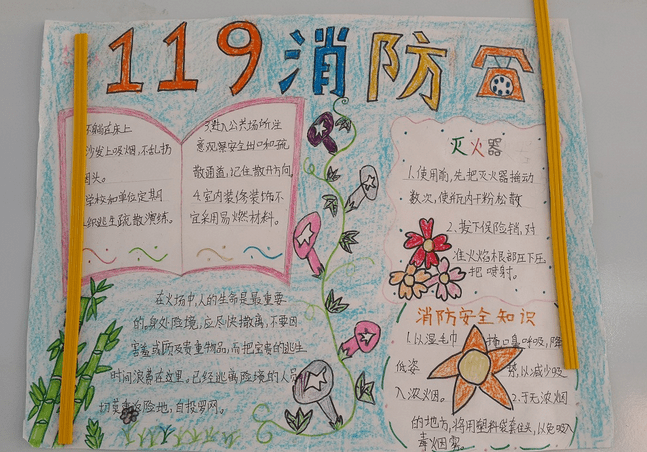 119消防
不躺在床上
沙发上吸烟,不乱扔
头。
学校和单位定期
织逃生疏散演练。
3.进入公共场所注
意观察安全出口和疏
散通道,记住散开方向
4.室内装修装饰不
宜采用易燃材料。
在火场中,人的生命是最重要
的,身处险境,应尽快撤离,不要因
害羞或顾及贵重物品,而把宝贵的逃生
时间浪费在这里。已经逃离险境的人员
切莫重返险地,自投罗网。
灭火器
1.使用前,先把灭火器摇动
数次,使瓶内干粉松散
2.拔下保险销,对
准火焰根部压下压
把喷射。
消防安全知识
1.以湿毛巾掩口鼻呼吸,降
低姿势,以减少吸
入浓烟。2.于无浓烟
的地方,将用塑料袋套住头,以免吸入
毒烟雾